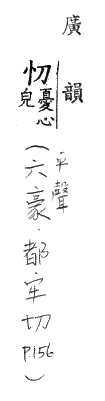 廣韻
忉憂心皃
(平聲六豪.都牢切P.156)